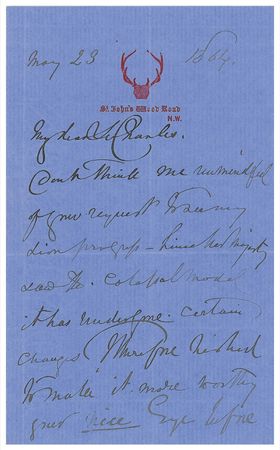 May 23 1864.
St. John's Wood Road
N.W.
My dear Sr Charles.
Dont think me unmindful
of your request to see my
Lion progress – since her Majesty
saw the colossal model
it has undergone certain
changes Therefore I wished
to make it more worthy
your nice Eye before